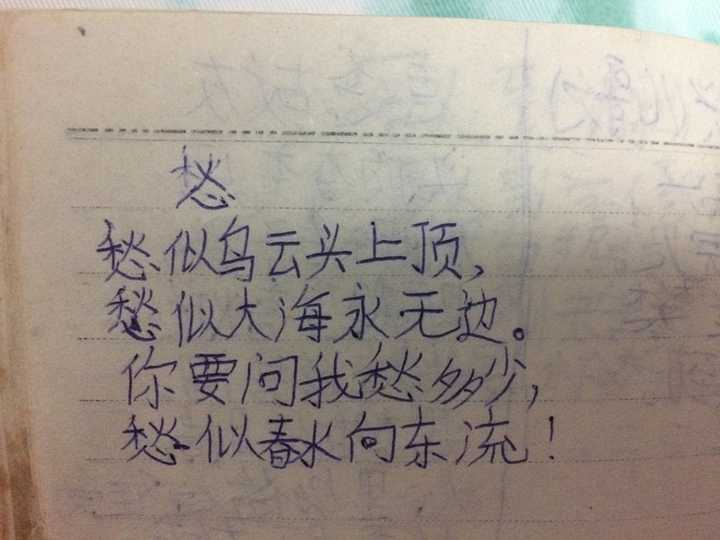 愁
愁似乌云头上顶,
愁似大海永无边。
你要问我愁多少,
愁似春水向东流!